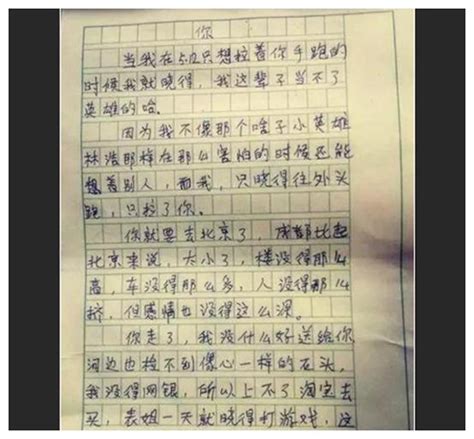 你
当我在512只想拉着你手跑的
时候我就晓得，我这辈子当不了
英雄的哈。
因为我不像那个啥子小英雄
林浩那样在那么害怕的时候还能
想着别人，而我，只晓得往外头
跑，只拉了你。
你就要去北京了，成都比起
北京来说，太小了，楼没得那么
高，车没得那么多，人没得那么
挤，但感情也没得这么深。
你走了，我没什么好送给你
河边也捡不到像心一样的石头，
我没得网银，所以上不了淘宝去
买，表姐一天就晓得打游戏，这